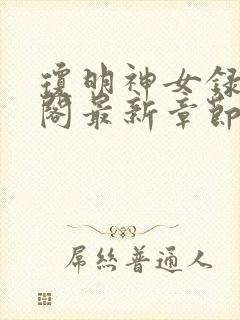 瓊明神女録
閣最新章節
屌丝普通人